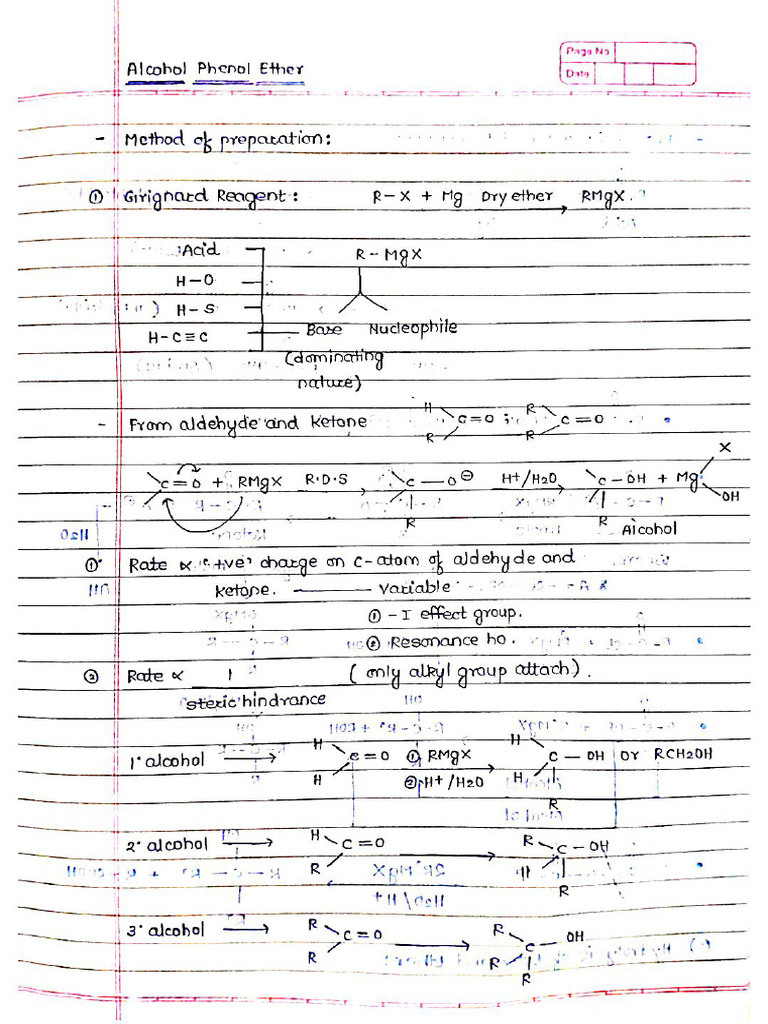 Page No
Date
Alcohol Phenol Ether
- Method of preparation:
① Girignard Reagent: R-X + Mg Dry ether → RMgX.
Acid R-MgX
H-O
H-S
H-C≡C Base Nucleophile
(dominating
nature)
- From aldehyde and ketone H R C=O ; R R C=O
C=O + RMgX R.D.S → C-O⊖ R H+/H2O → C-OH R + Mg X OH
Alcohol
① Rate ∝ '+ve' charge on C-atom of aldehyde and
ketone. —— variable
① -I effect group.
② Resonance ho.
② Rate ∝ 1 (only alkyl group attach).
steric hindrance
1° alcohol → H H C=O ① RMgX ② H+/H2O → H H C-OH R or RCH2OH
2° alcohol → H R C=O → R H C-OH R
3° alcohol → R R C=O → R R C OH R